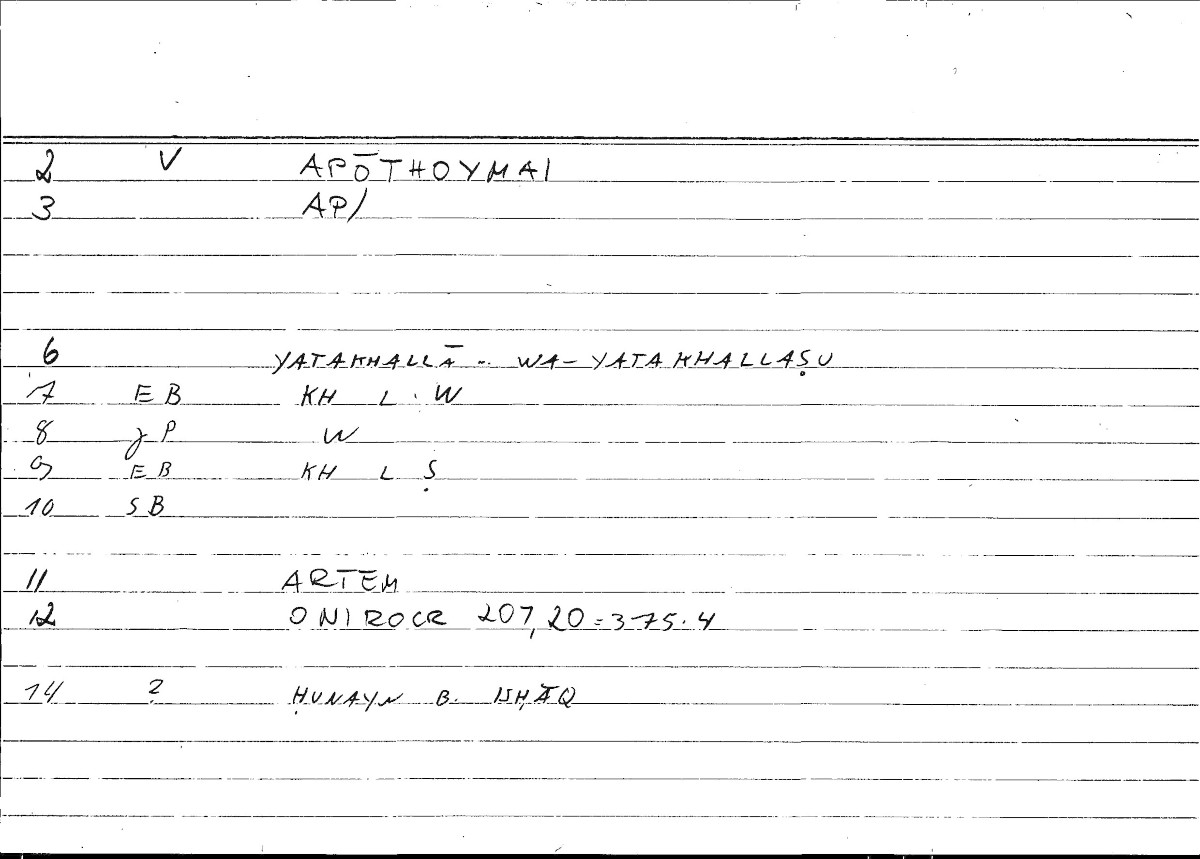 2 V APŌTHOYMAI
3 AP/
6 YATAKHALLĀ .. WA-YATAKHALLAṢU
7 EB KH L . W
8 JP W
9 EB KH L Ṣ
10 SB
11 ARTEM
12 ONIROCR 207,20=375.4
14 2 ḤUNAYN B. ISḤĀQ